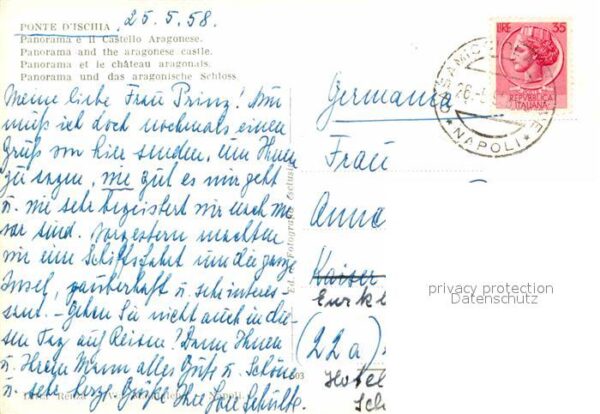 PONTE D'ISCHIA 25.5.58.
Panorama e il Castello Aragonese.
Panorama and the aragonese castle.
Panorama et le château aragonais.
Panorama und das aragonische Schloss
Meine liebe Frau Prinz! Nun
muß ich doch nochmals einen
Gruß von hier senden, um Ihnen
zu sagen, wie gut es mir geht
u. wie sehr begeistert wir nach wie
vor sind. Vorgestern machten
wir eine Schiffsfahrt um die ganze
Insel, zauberhaft u. sehr interes
sant. - Gehen Sie nicht auch in die-
sen Tagen auf Reisen? Dann Ihnen
u. Ihrem Mann alles Gute u. Schöne
u. sehr herzl. Grüße Ihre
Ed. Fotografia
LIRE 35
REPVBBLICA
ITALIANA
NAPOLI
Germania
Frau
Anna
Kaiser
(22a)
Hotel
privacy protection
Datenschutz